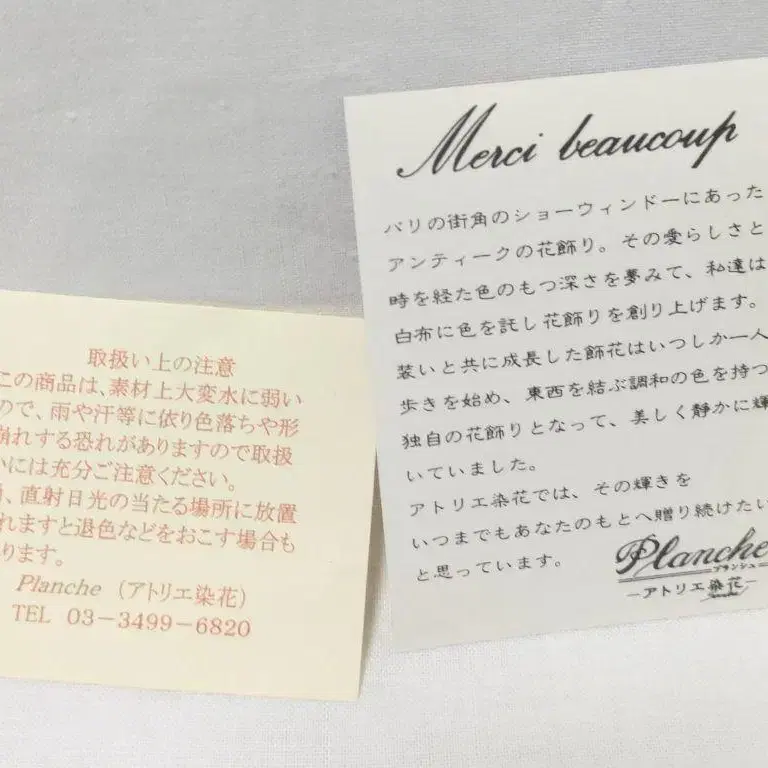 取扱い上の注意
この商品は、素材上大変水に弱い
ので、雨や汗等に依り色落ちや形
崩れする恐れがありますので取扱
いには充分ご注意ください。
、直射日光の当たる場所に放置
れますと退色などをおこす場合も
ります。
Planche (アトリエ染花)
TEL 03-3499-6820
Merci beaucoup
パリの街角のショーウィンドーにあった
アンティークの花飾り。その愛らしさと
時を経た色のもつ深さを夢みて、私達は
白布に色を託し花飾りを創り上げます。
装いと共に成長した飾花はいつしか一人
歩きを始め、東西を結ぶ調和の色を持つ
独自の花飾りとなって、美しく静かに輝
いていました。
アトリエ染花では、その輝きを
いつまでもあなたのもとへ贈り続けたい
と思っています。
Planche
プランシュ
―アトリエ染花―